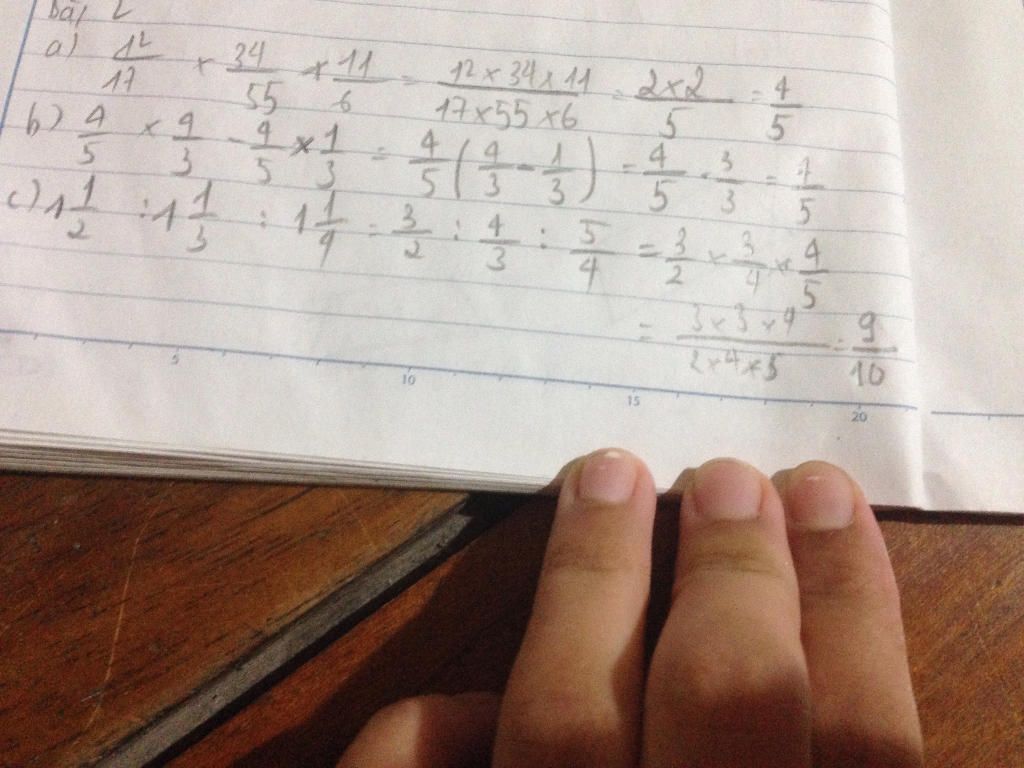 Bài 2
a) 12/17 × 34/55 × 11/6 = 12×34×11/17×55×6 = 2×2/5 = 4/5
b) 4/5 × 4/3 - 4/5 × 1/3 = 4/5 (4/3 - 1/3) = 4/5 . 3/3 = 4/5
c) 1 1/2 : 1 1/3 : 1 1/4 = 3/2 : 4/3 : 5/4 = 3/2 × 3/4 × 4/5
= 3×3×4/2×4×5 = 9/10
5 10 15 20